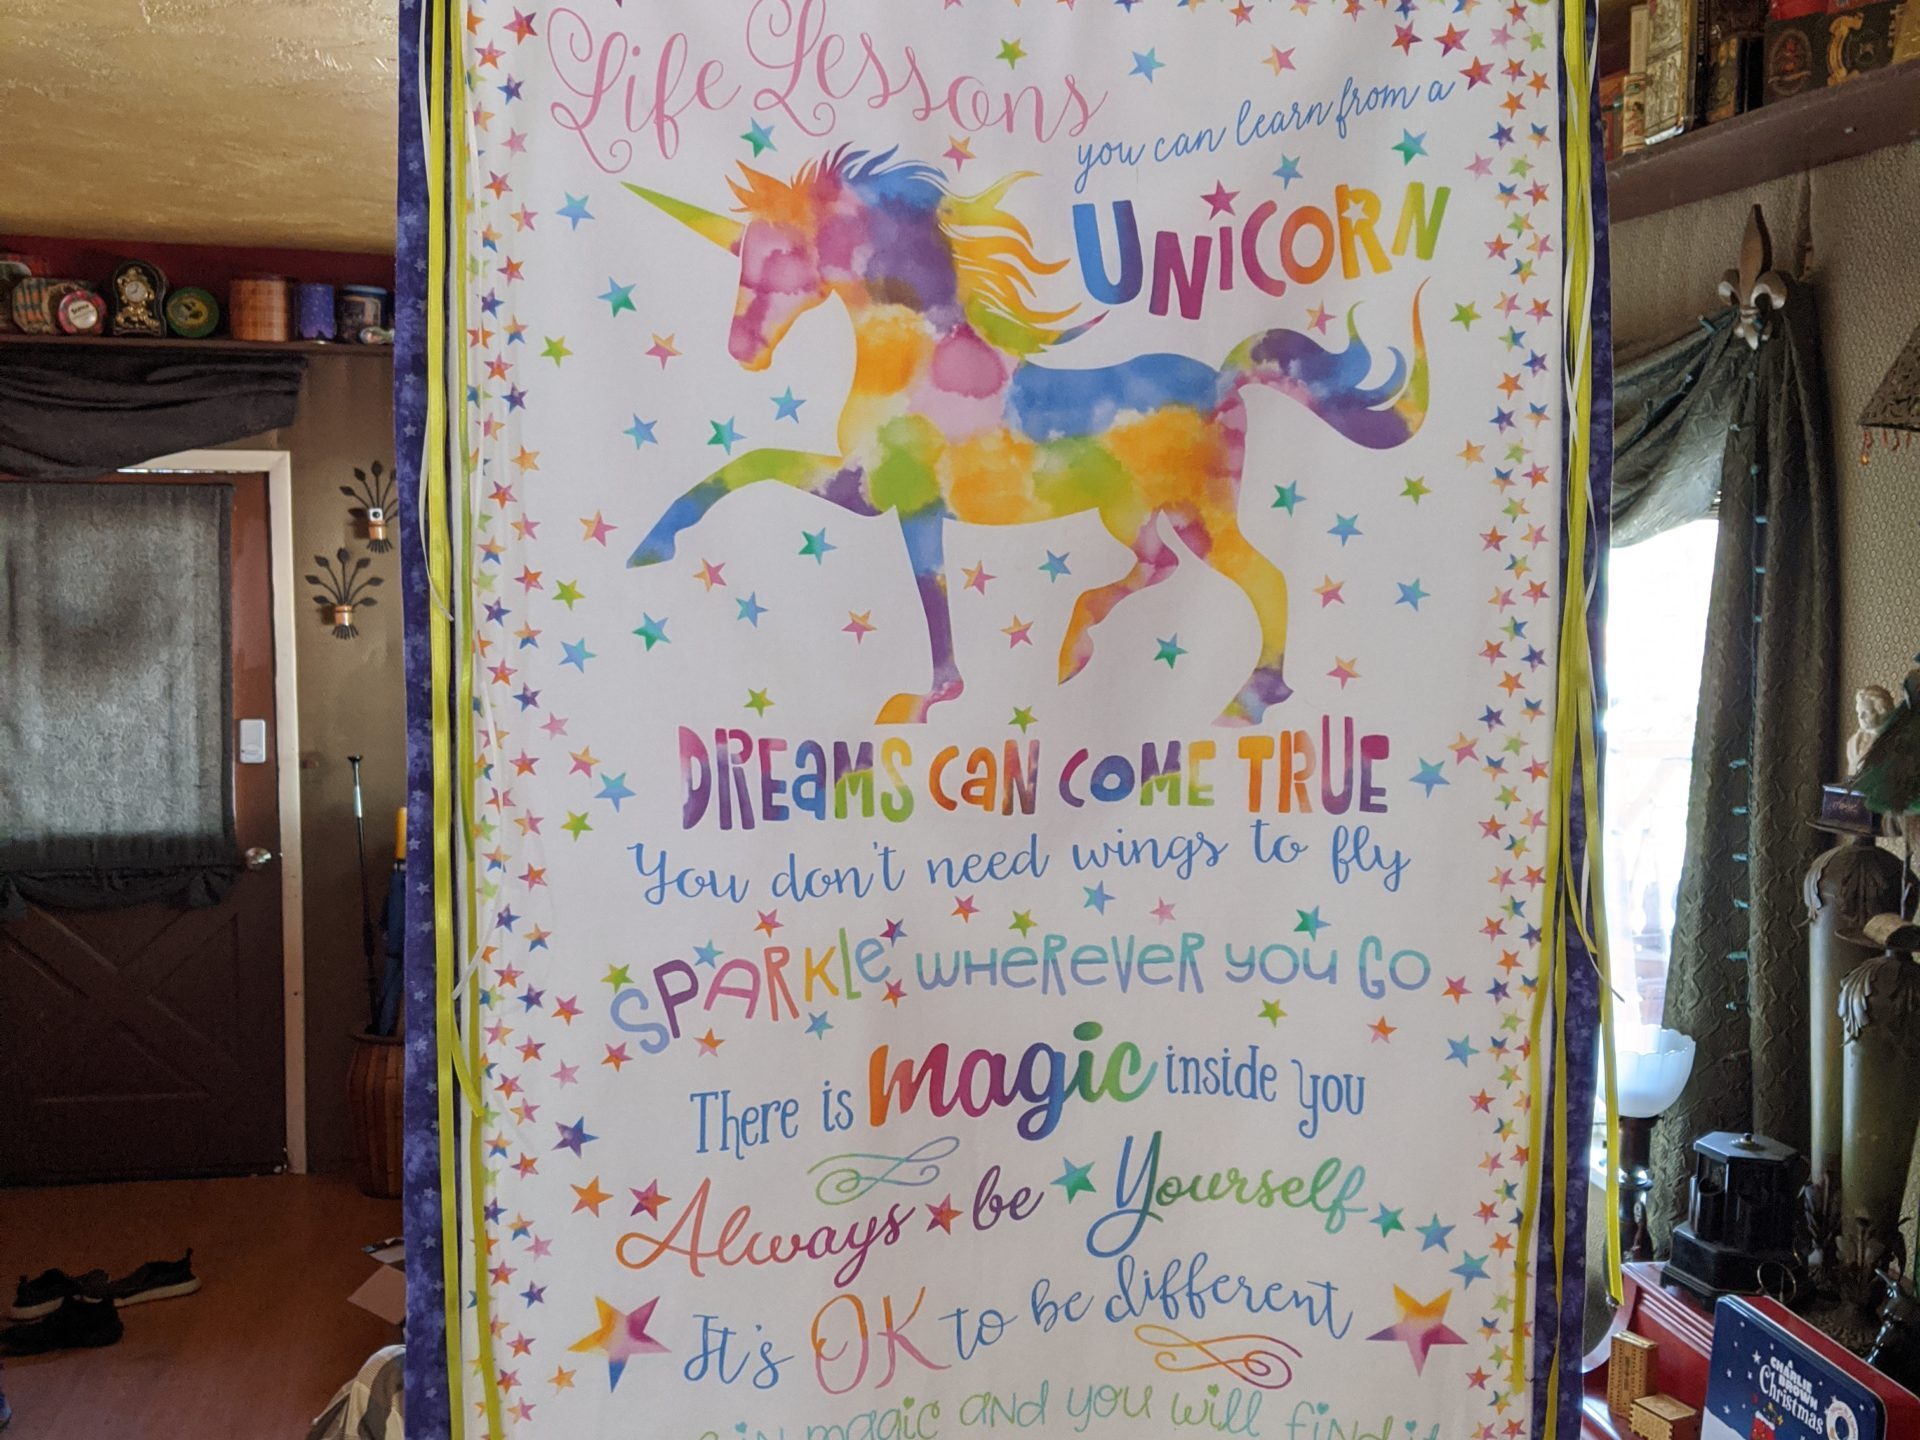 Life Lessons
you can learn from a
UNiCORN
DREaMS CaN COME TRUE
You don't need wings to fly
SPARKLE WHEREVER YOU GO
There is magic inside you
Always be Yourself
It's OK to be different
in magic and you will find it
A CHARLIE BROWN Christmas